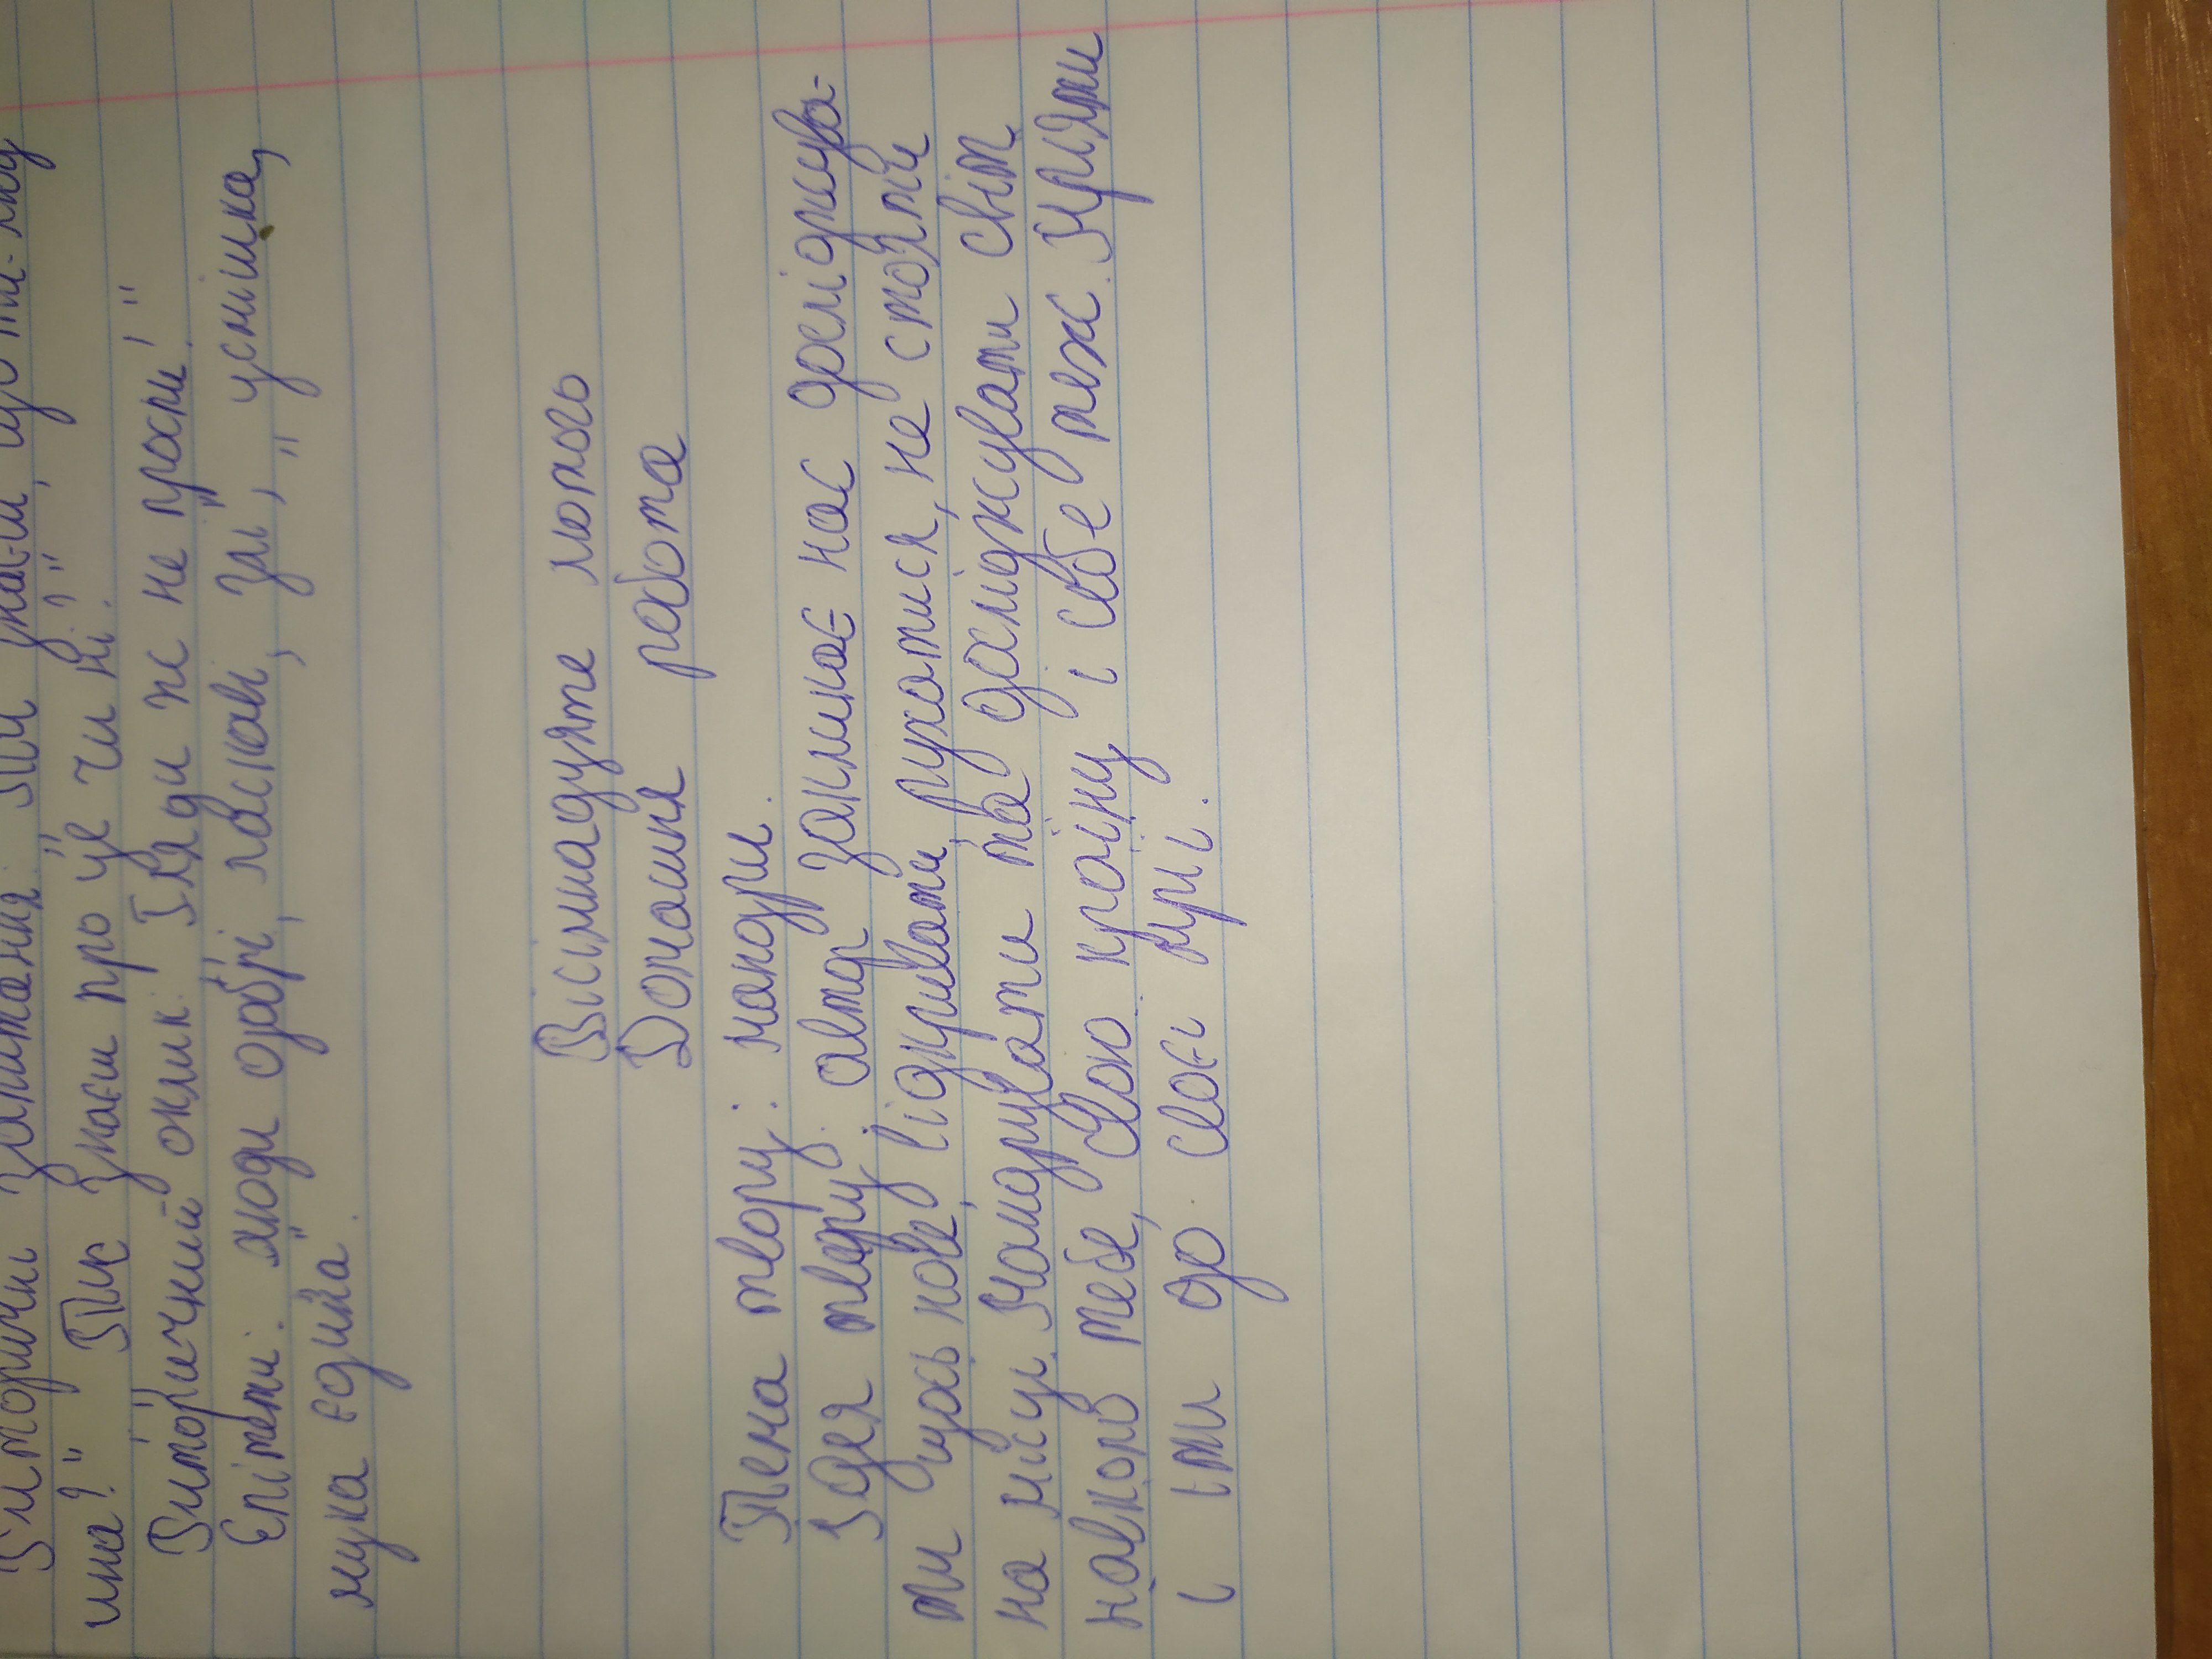 Риторичні запитання: "Ти знаєш, що ти- люд
ина?" "Ти знаєш про це чи ні?"
Риторичний оклик: "Гляди ж не проспи!"
Епітети: "люди добрі, ласкаві, злі", "усмішка,
мука єдина".
Вісімнадцяте лютого
Домашня робота
Тема твору: мандри.
Ідея твору: автор закликає нас досліджува-
ти щось нове, відкривати, рухатися, не стояти
на місці. Мандрувати та досліджувати світ
навколо тебе, свою країну і себе теж. Мріяти
і іти до своєї мрії.